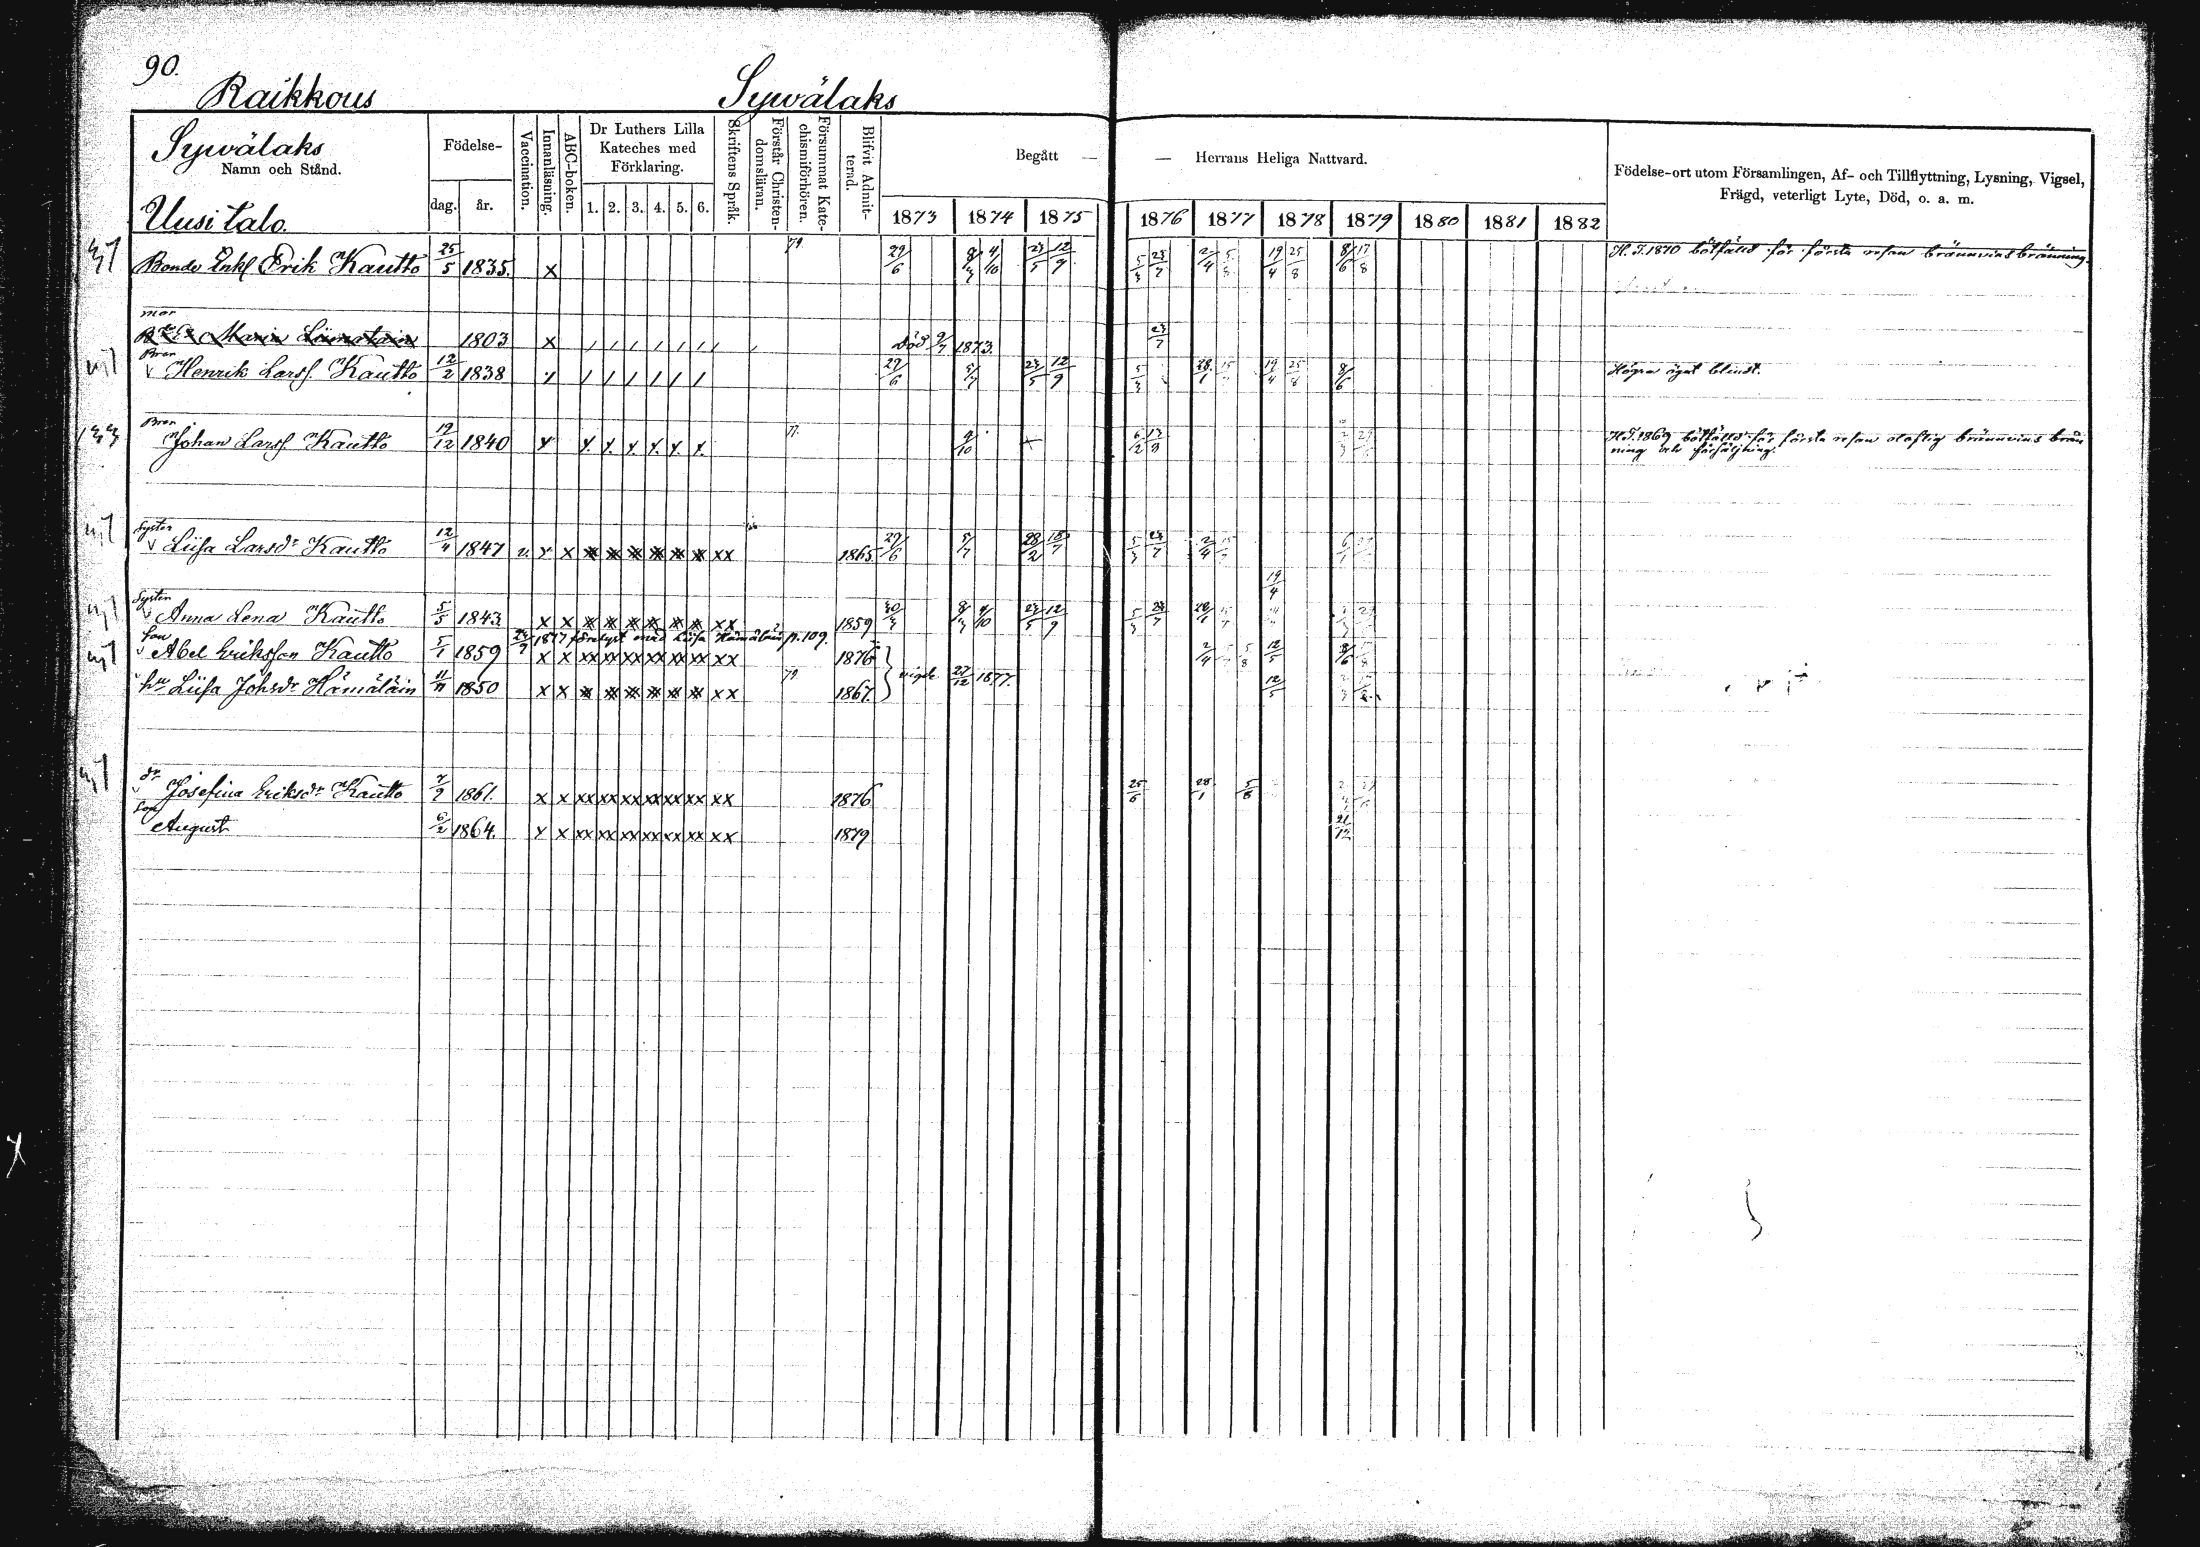 90.
Raikkous Sywälaks
Sywälaks
Namn och Stånd.
Uusi talo.
Födelse-
dag. år.
Vaccination.
Innanläsning.
ABC-boken.
Dr Luthers Lilla
Kateches med
Förklaring.
1. 2. 3. 4. 5. 6.
Skriftens Språk.
Förstår Christen-
domsläran.
Försummat Kate-
chismiförhören.
Blifvit Admit-
terad.
Begått — — Herrans Heliga Nattvard.
1873 1874 1875 1876 1877 1878 1879 1880 1881 1882
Födelse-ort utom Församlingen, Af- och Tillflyttning, Lysning, Vigsel,
Frägd, veterligt Lyte, Död, o. a. m.
Bonde Enkl Erik Kautto 25/5 1835. x 79 29/6 8/3 4/10 23/5 12/9 5/3 23/7 2/4 5/8 19/4 25/8 8/6 17/8 H. T. 1870 bötfälld för första resan brännvinsbränning.
mor
Maria 1803 x Död 9/7 1873. 23/7
Bror
v Henrik Larss. Kautto 12/2 1838 29/6 5/7 23/5 12/9 5/3 28/1 19/4 25/8 8/6 Högra ögat blindt.
Bror
Johan Larss. Kautto 19/12 1840 77. 9/10 6/2 13/8 H. T. 1869 bötfälld för första resan olaflig brännvins brän
ning och försäljning.
Syster
v Liisa Larsdr Kautto 12/4 1847 v. x x xx 1865. 29/6 5/7 28/2 18/7 5/3 23/7 2/4
19/4
Syster
v Anna Lena Kautto 5/5 1843 x x xx 1859 30/3 8/3 4/10 23/5 12/9 5/3 23/7 28/1
Son 23/9 1877 förelyst med Liisa Hämäläin p. 109.
v Abel Eriksson Kautto 5/1 1859 x x xx xx xx xx xx xx xx 1876 2/4 5/8 12/5 8/6
vigde 27/12 1877.
hu Liisa Johsdr Hämäläin 11/11 1850 x x xx 79 1867. 12/5
dr
v Josefina Eriksdr Kautto 7/9 1861. x x xx xx xx xx xx xx xx 1876 25/6 28/1 5/8
Son
August 6/2 1864. x x xx xx xx xx xx xx xx 1879 21/12